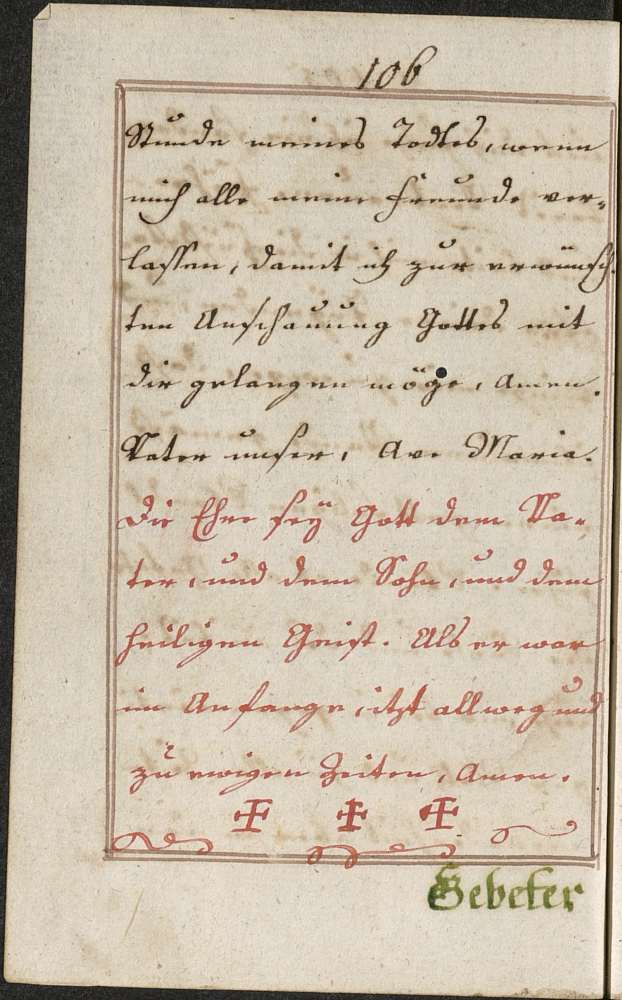 106
Stunde meines Todtes, wenn
mich alle meine Freunde ver-
lassen, damit ich zur erwünsch
ten Anschauung Gottes mit
dir gelangen möge, Amen.
Vater unser, Ave Maria.
Die Ehre seÿ Gott dem Va-
ter, und dem Sohn, und dem
heiligen Geist. Als er war
im Anfange, itzt allweg und
zu ewigen Zeiten, Amen.
Gebeter